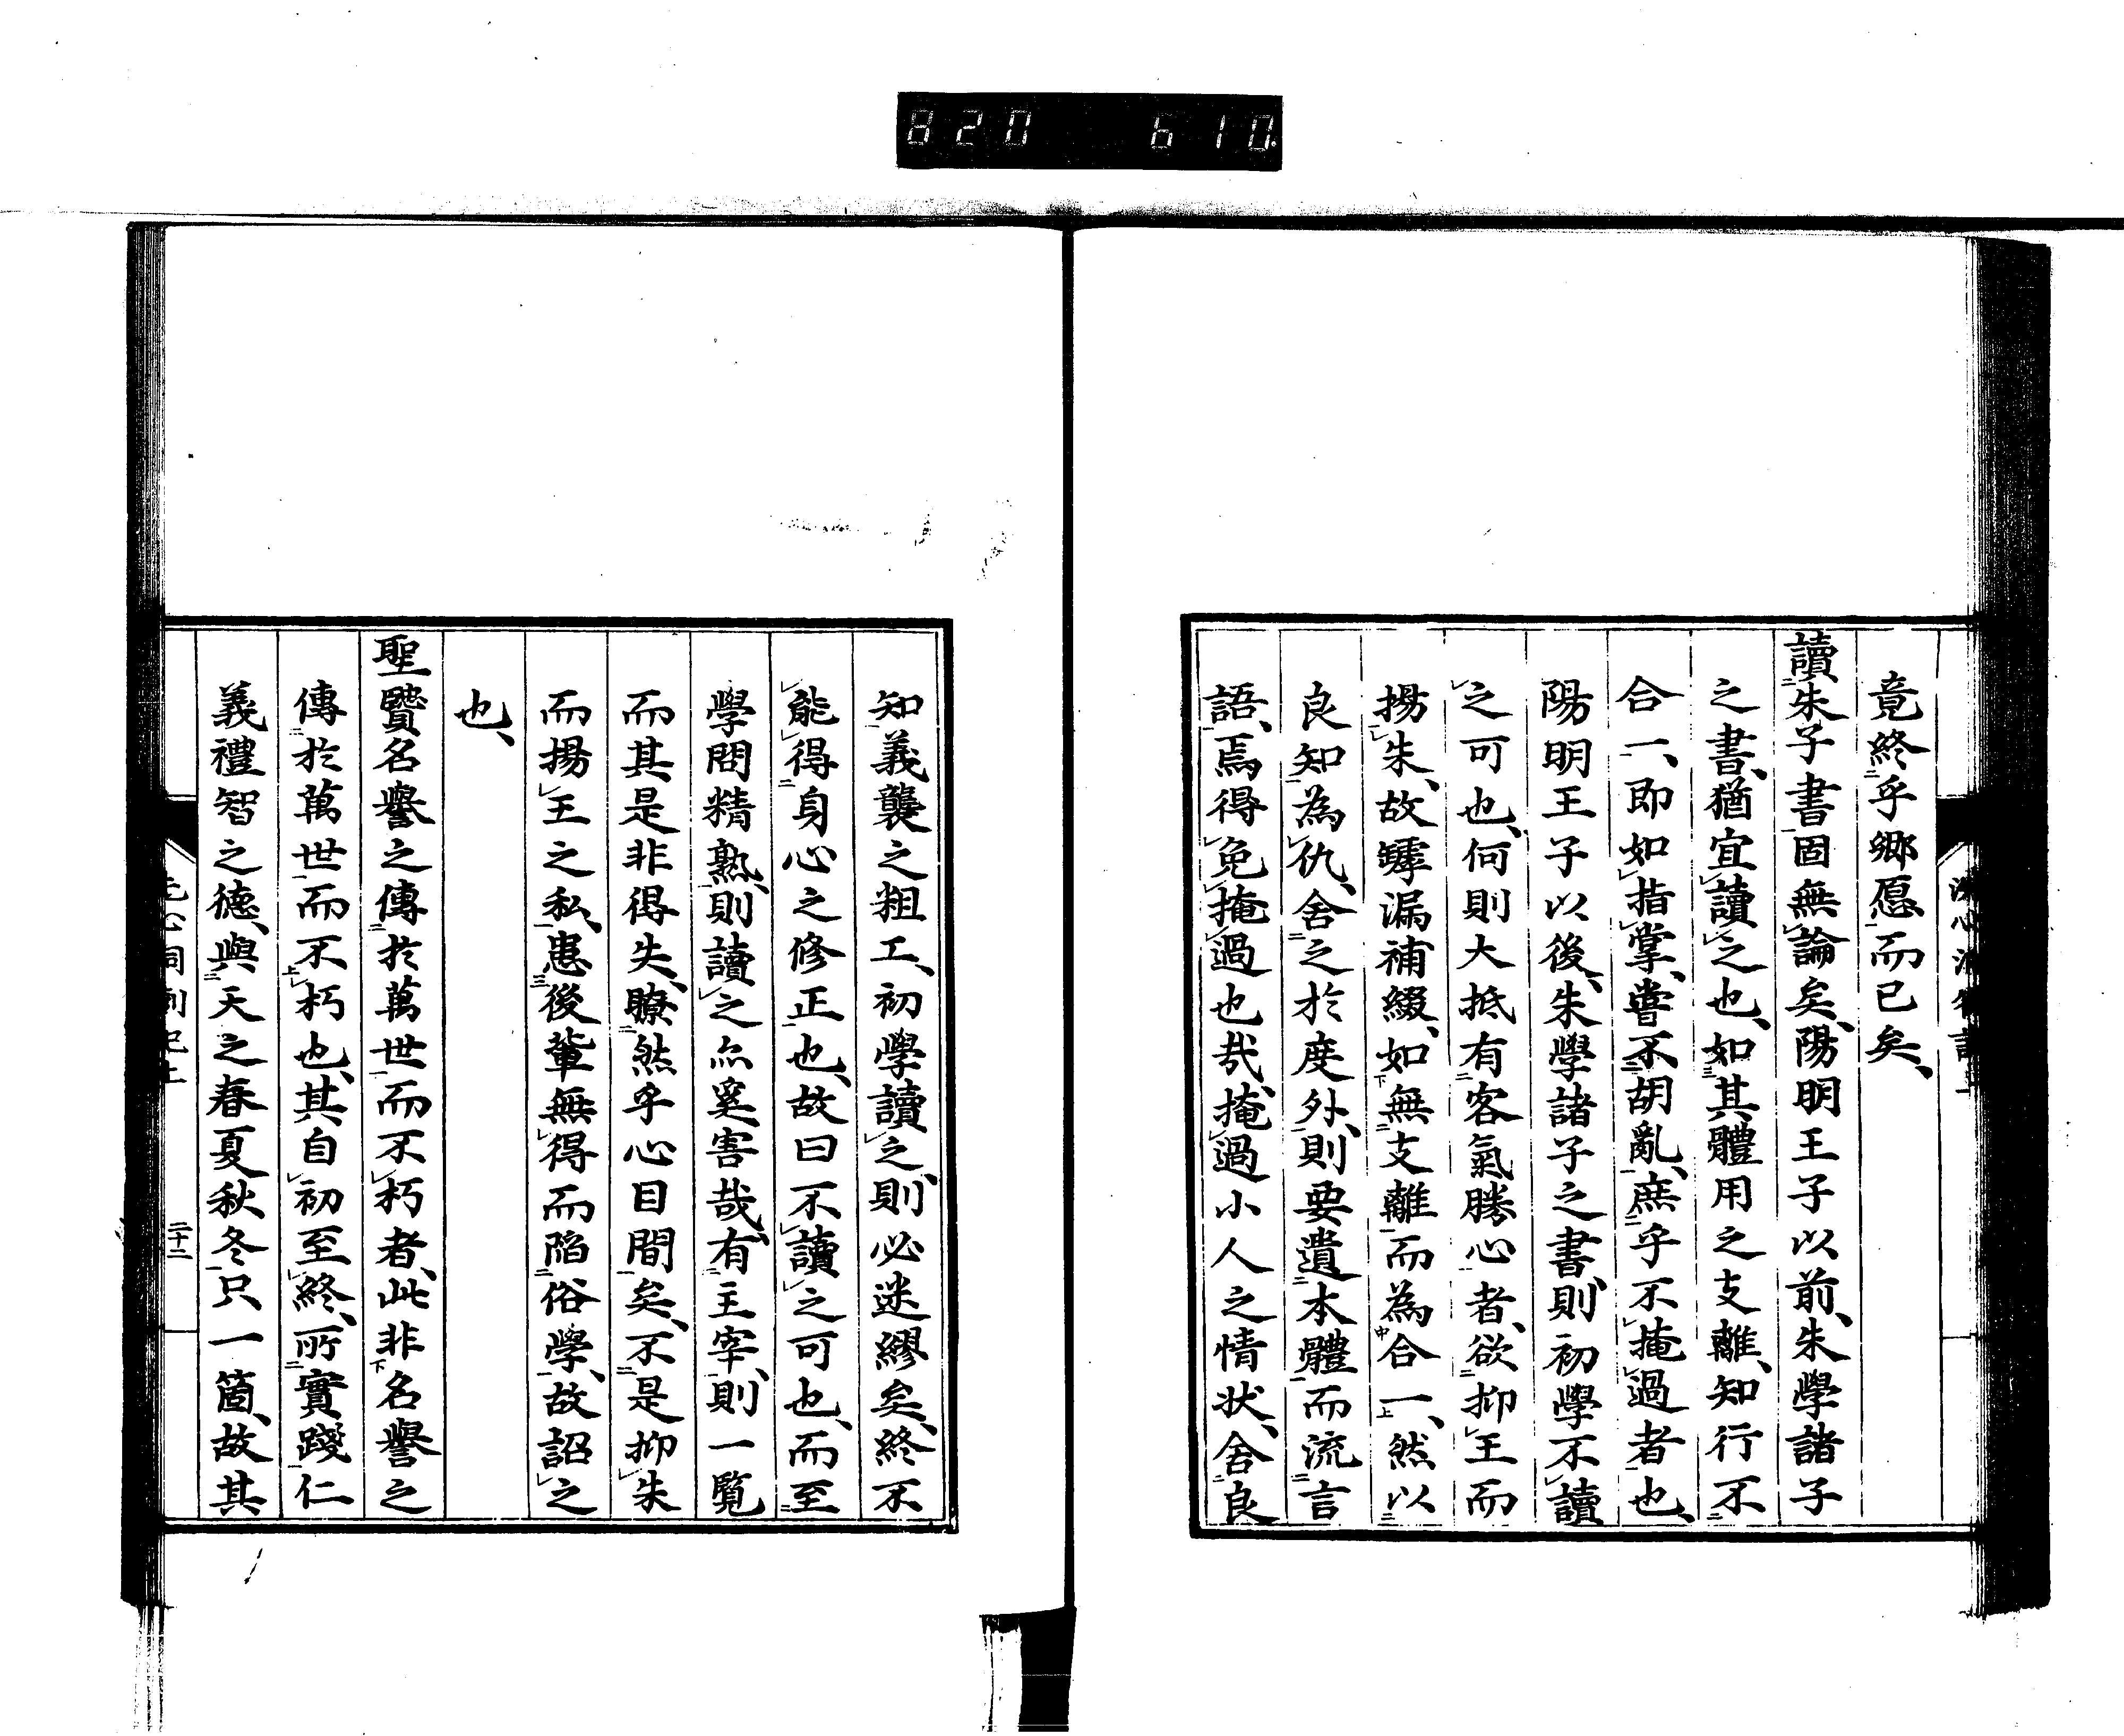 820 610
竟終乎郷愿而已矣、
讀朱子書固無論矣、陽明王子以前、朱學諸子
之書、猶宜讀之也、如其體用之支離、知行不
合一、即如指掌、嘗不胡亂、庶乎不掩過者也、
陽明王子以後、朱學諸子之書、則初學不讀
之可也、何則大抵有客氣勝心者、欲抑王而
揚朱、故罅漏補綴、如無支離而為合一、然以
良知為仇、舍之於度外、則要遺本體而流言
語、焉得免掩過也哉、掩過小人之情状、舍良
知義襲之粗工、初學讀之、則必迷繆矣、終不
能得身心之修正也、故曰不讀之可也、而至
學問精熟、則讀之亦奚害哉、有主宰、則一覧
而其是非得失、瞭然乎心目間矣、不是抑朱
而揚王之私、患後輩無得而陷俗學、故詔之
也、
聖賢名譽之傳於萬世而不朽者、此非名譽之
傳於萬世而不朽也、其自初至終、所實踐仁
義禮智之德、與天之春夏秋冬、只一箇、故其
洞劄記上
二十二